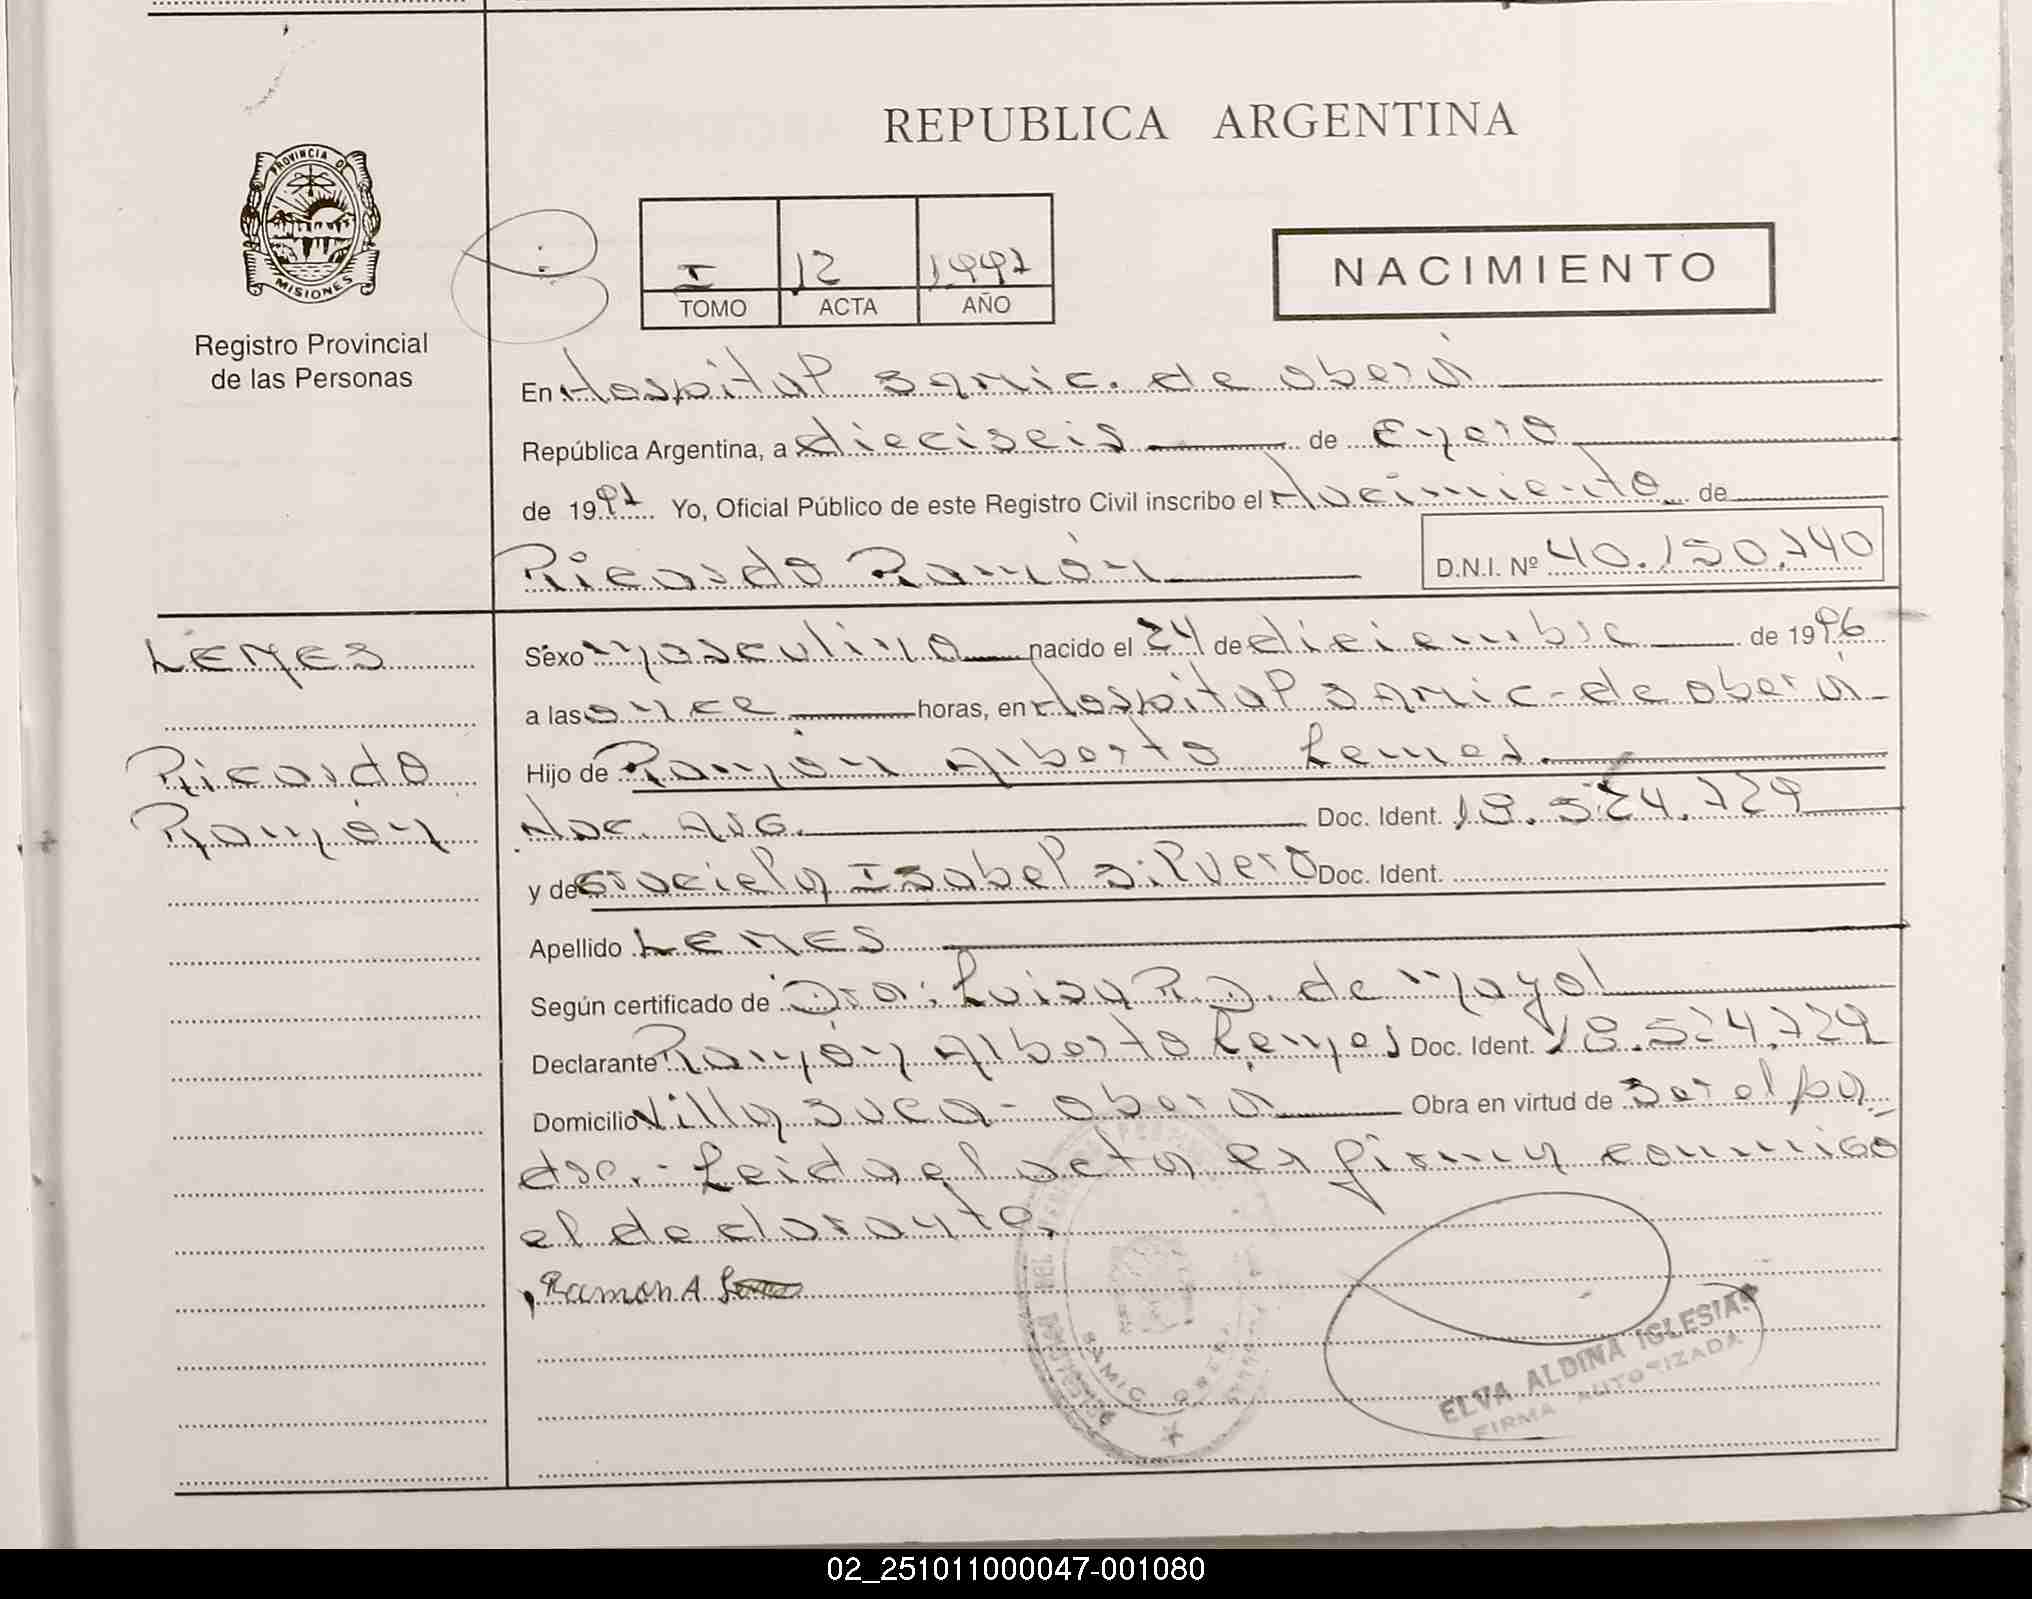 REPUBLICA ARGENTINA
PROVINCIA DE
MISIONES
Registro Provincial
de las Personas
I 12 1997
TOMO ACTA AÑO
NACIMIENTO
En Hospital SAMIC. de oberá
República Argentina, a dieciseis de Enero
de 1997 Yo, Oficial Público de este Registro Civil inscribo el Nacimiento de
Ricardo Ramón D.N.I. Nº 40.150.740
LEMES
Ricardo
Ramón
Sexo masculino nacido el 24 de diciembre de 1996
a las once horas, en Hospital SAMIC - de oberá
Hijo de Ramón Alberto Lemes.
Nac. Arg. Doc. Ident. 18.524.729
y de Graciela Isabel Silvero Doc. Ident.
Apellido LEMES
Según certificado de Dra: Luisa R D. de Mayol
Declarante Ramón Alberto Lemes Doc. Ident. 18.524.729
Domicilio Villa Suca - oberá Obra en virtud de ser el pa_
dre. - Leida el acta la firma conmigo
el declarante.
Ramon A
SAMIC OBERA
ELVA ALDINA IGLESIAS
FIRMA AUTORIZADA
02_251011000047-001080